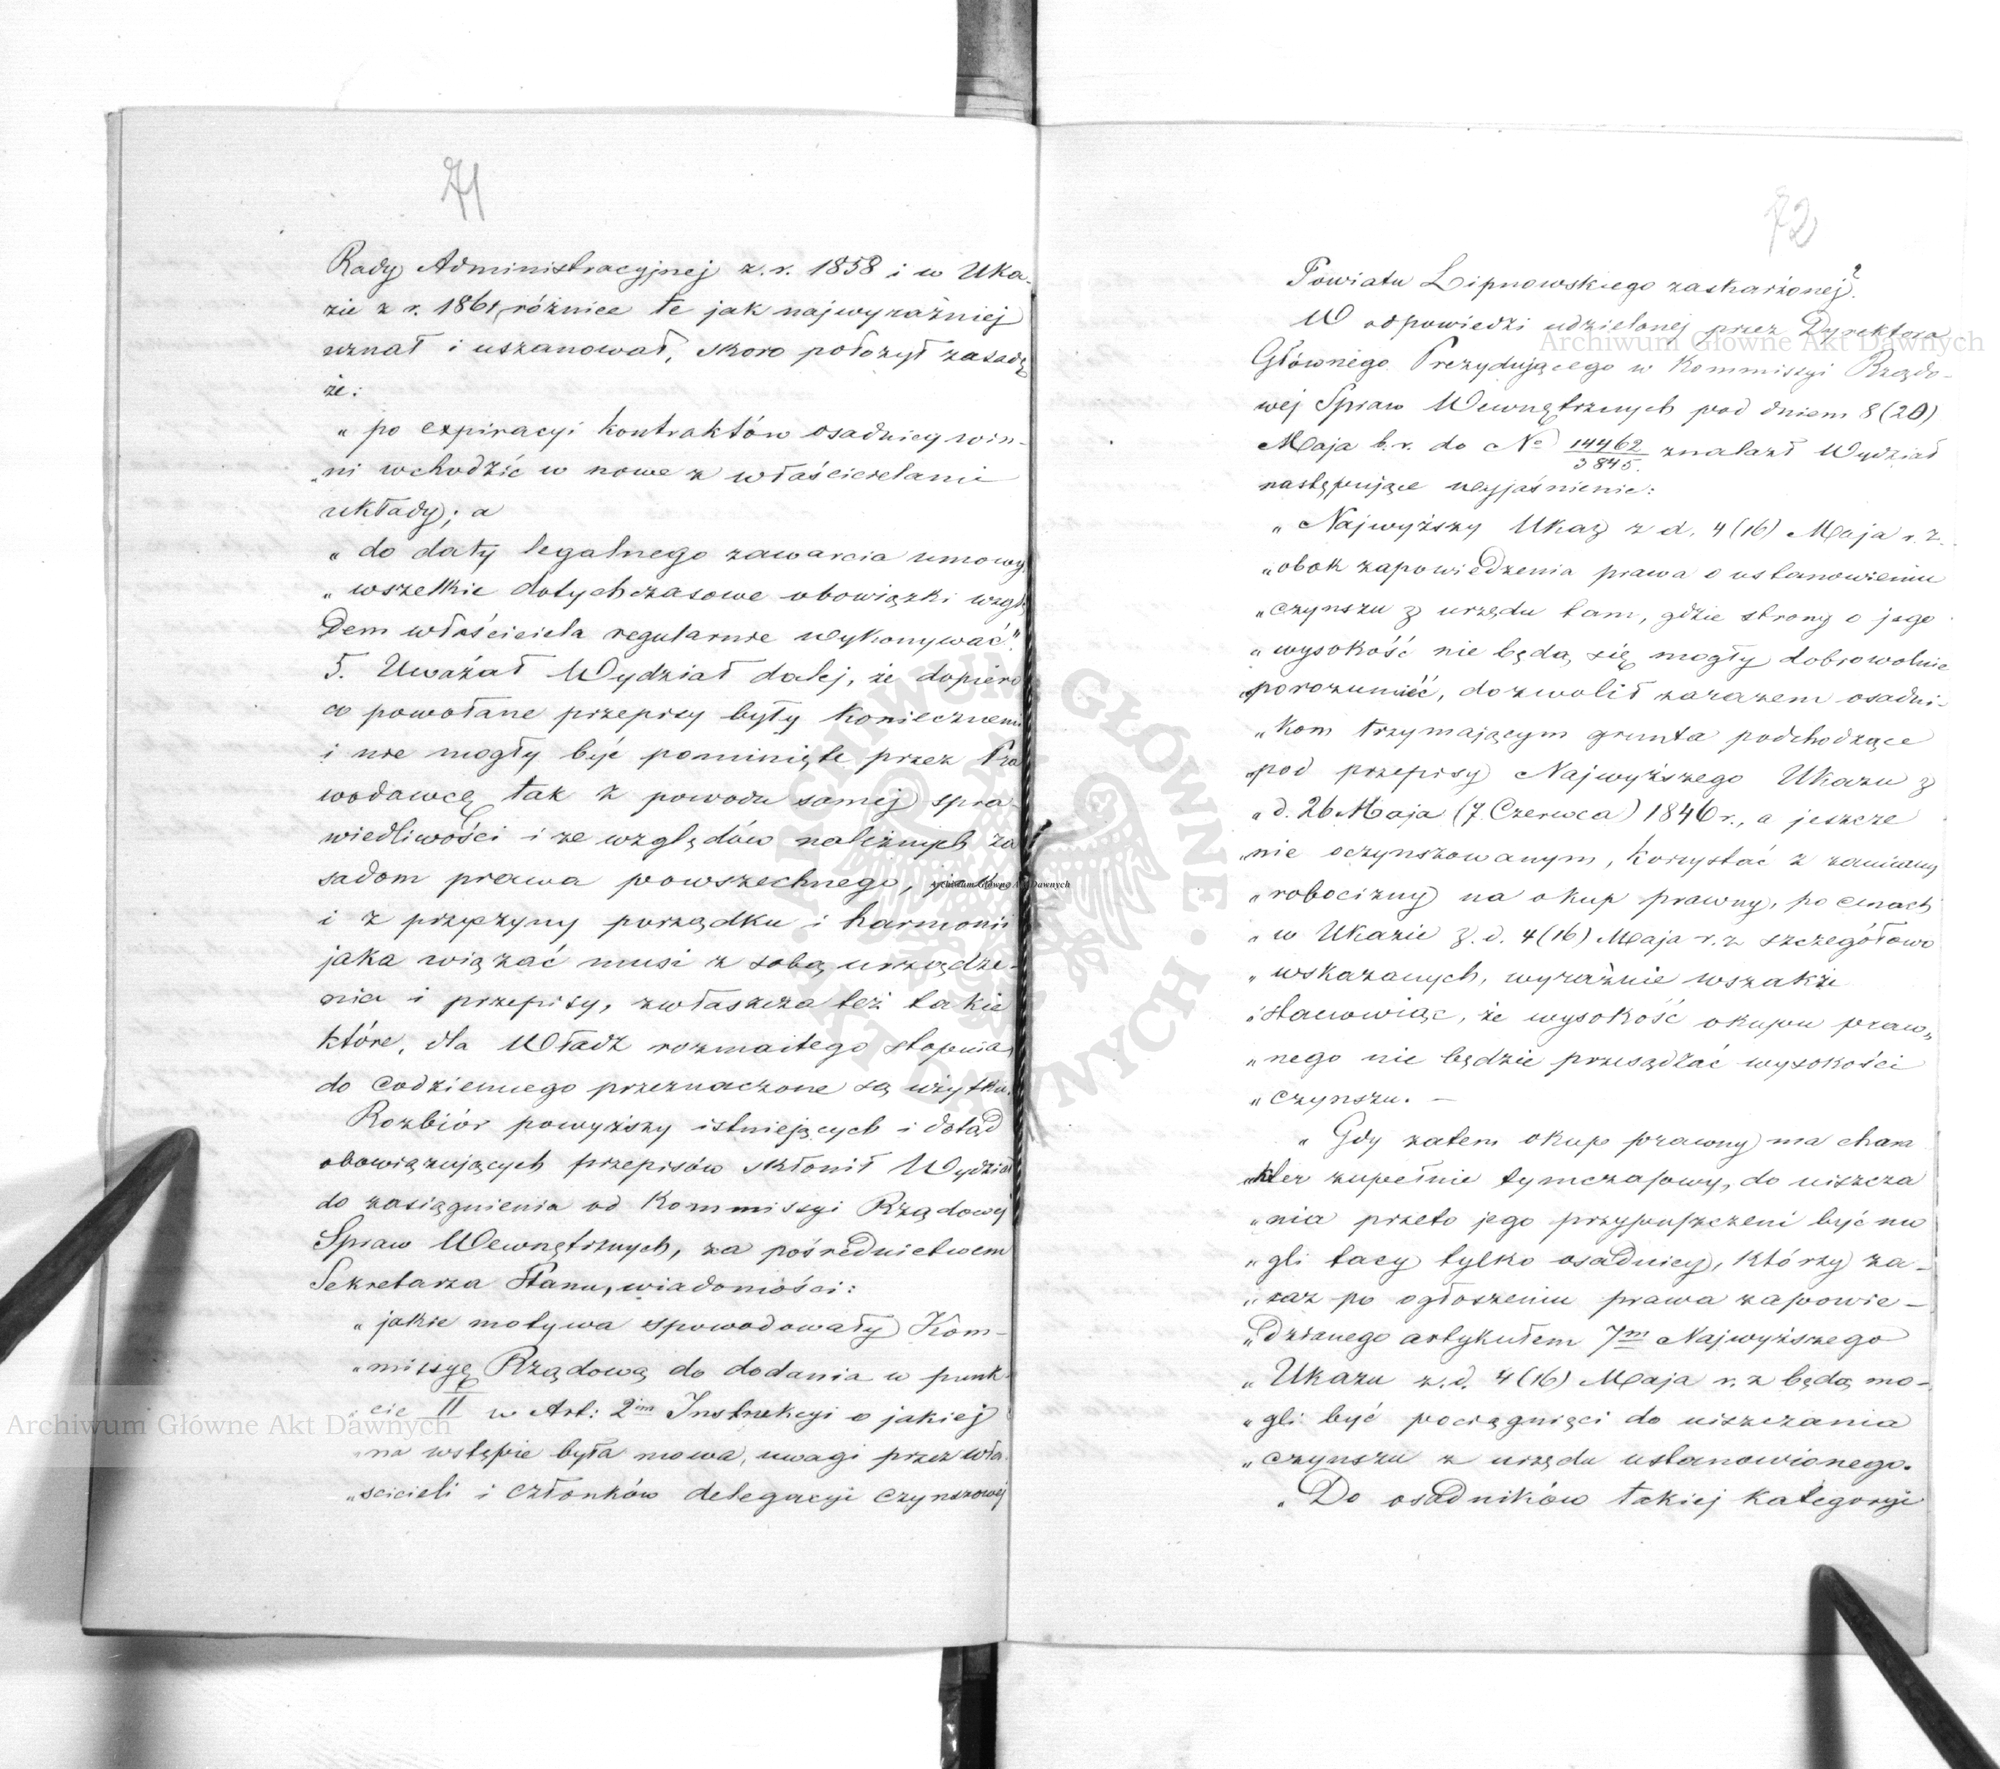 71
Rady Administracyjnej z. r. 1858 i w Uka-
zie z r. 1861, różnice te jak najwyraźniej
uznał i uszanował, skoro położył zasadę
że:
„ po expiracyi kontraktów osadnicy win-
„ni wchodzić w nowe z właścicielami
układy; a
„ do daty legalnego zawarcia umowy
„ wszelkie dotychczasowe obowiązki wzglę
dem właściciela regularnie wykonywać".
5. Uważał Wydział dalej, że dopiero
co powołane przepisy były koniecznemi
i nie mogły być pominięte przez Pra
wodawcę tak z powodu samej spra-
wiedliwości i ze względów należnych za
sadom prawa powszechnego, jak
i z przyczyny porządku i harmonii
jaka wiązać musi z sobą urządze-
nia i przepisy, zwłaszcza też takie
które, dla Władz rozmaitego stopnia,
do codziennego przeznaczone są użytku.
Rozbiór powyższy istniejących i dotąd
obowiązujących przepisów skłonił Wydział
do zasiągnienia od Kommissyi Rządowej
Spraw Wewnętrznych, za pośrednictwem
Sekretarza Stanu, wiadomości:
„ jakie motywa spowodowały Kom-
„missyę Rządową do dodania w punk-
„cie II w Art: 2im Instrukcyi o jakiej
„na wstępie była mowa, uwagi przez wła
„scicieli i członków delegacyi czynszowej
72
Powiatu Lipnowskiego zaskarżonej?
W odpowiedzi udzielonej przez Dyrektora
Głównego Prezydującego w Kommissyi Rządo-
wej Spraw Wewnętrznych pod dniem 8 (20)
Maja b. r. do No 14462/3845. znalazł Wydział
następujące wyjaśnienie:
„ Najwyższy Ukaz z d. 4 (16) Maja r. z.
„obok zapowiedzenia prawa o ustanowieniu
„czynszu z urzędu tam, gdzie strony o jego
„ wysokość nie będą się mogły dobrowolnie
„porozumieć, dozwolił zarazem osadni-
„kom trzymającym grunta podchodzące
„pod przepisy Najwyższego Ukazu z
„ d. 26 Maja (7 Czerwca) 1846 r., a jeszcze
„nie oczynszowanym, korzystać z zamiany
„ robocizny na okup prawny, po cenach
„ w Ukazie z. d. 4 (16) Maja r. z szczegółowo
„ wskazanych, wyraźnie wszakże
„stanowiąc, że wysokość okupu praw-
„nego nie będzie przesądzać wysokości
„ czynszu. —
„ Gdy zatem okup prawny ma chara
„kter zupełnie tymczasowy, do uiszcza
„nia przeto jego przypuszczeni być mo
„gli tacy tylko osadnicy, którzy za-
„raz po ogłoszeniu prawa zapowie-
„dzianego artykułem 7m Najwyższego
„Ukazu z. d. 4 (16) Maja r. z będą mo-
„gli być pociągnięci do uiszczania
„czynszu z urzędu ustanowionego.
„ Do osadników takiej kategoryi
Archiwum Główne Akt Dawnych
Archiwum Główne Akt Dawnych
Archiwum Główne Akt Dawnych
ARCHIWUM GŁÓWNE AKT DAWNYCH